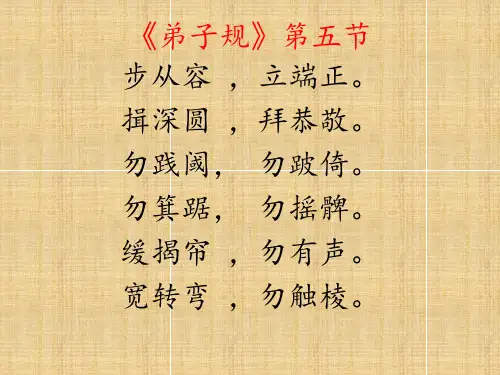 《弟子规》第五节
步从容 ，立端正。
揖深圆 ，拜恭敬。
勿践阈， 勿跛倚。
勿箕踞， 勿摇髀。
缓揭帘 ，勿有声。
宽转弯 ，勿触棱。